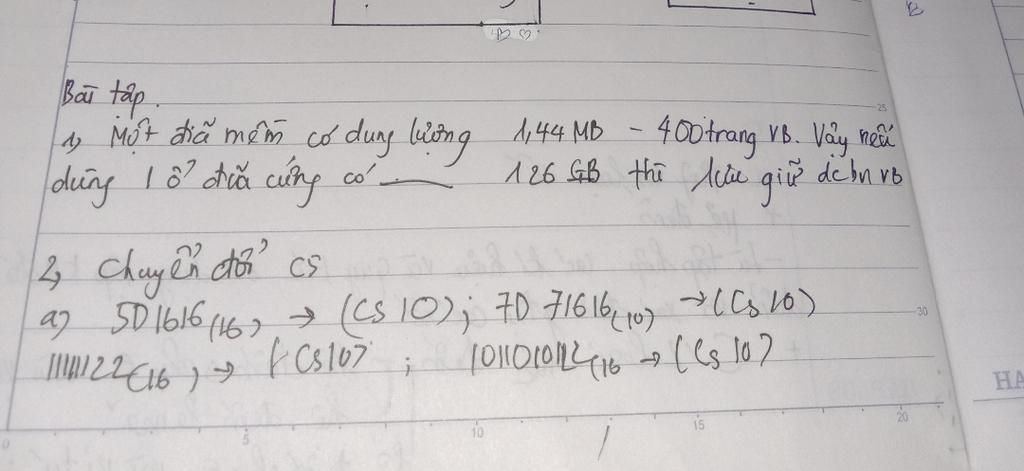 Bài tập.
1, Một đĩa mềm có dung lượng 1,44 MB - 400 trang VB. Vậy nếu
dùng 1 ổ đĩa cứng có — 126 GB thì lưu giữ dc bn VB
2, Chuyển đổi CS
a) 5D1616(16) → (CS 10) ; 7D 71616(10) → (CS 10)
1111122(16) → (CS10) ; 1011010112(16 → (CS 10)
25
30
HA
0 5 10 15 20